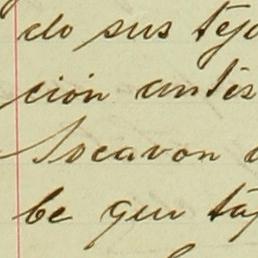 do sus tejo
ción antes
Socavon
be que tap